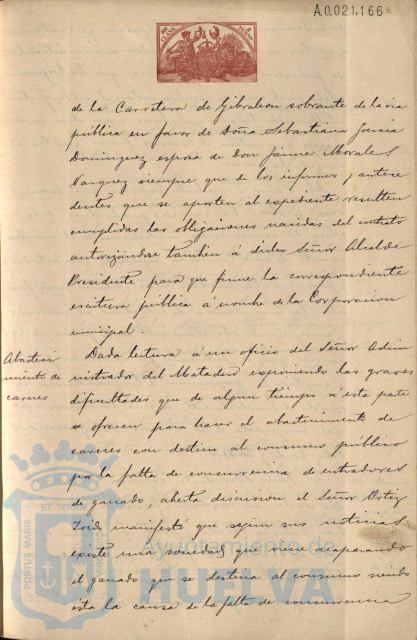 A.0.021.166*
de la Carretera de Gibraleon sobrante de la via
publica en favor de Doña Sebastiana Garcia
Dominguez esposa de Don Jaime Morales
Vazquez siempre que de los informes y antece
dentes que se aporten al espediente resulten
cumplidas las obligaciones nacidas del contrato
autorizandose tambien á dicho Señor Alcalde
Presidente para que firme la correspondiente
escritura pública á nombre de la Corporacion
municipal.
Abasteci
miento de
carnes
Dada lectura á un oficio del Señor Admi
nistrador del Matadero esponiendo las graves
dificultades que de algun tiempo á esta parte
se ofrecen para hacer el abastecimiento de
carnes con destino al consumo público
por la falta de concurrencia de entradores
de ganado, abierta discusion el Señor Ortiz
manifestó que segun sus noticias
existe una sociedad que viene acaparando
el ganado que se destina al consumo siendo
esta la causa de la falta de concurrencia
PORTUS MARIS
ET TERRAE
Ayuntamiento de
HUELVA